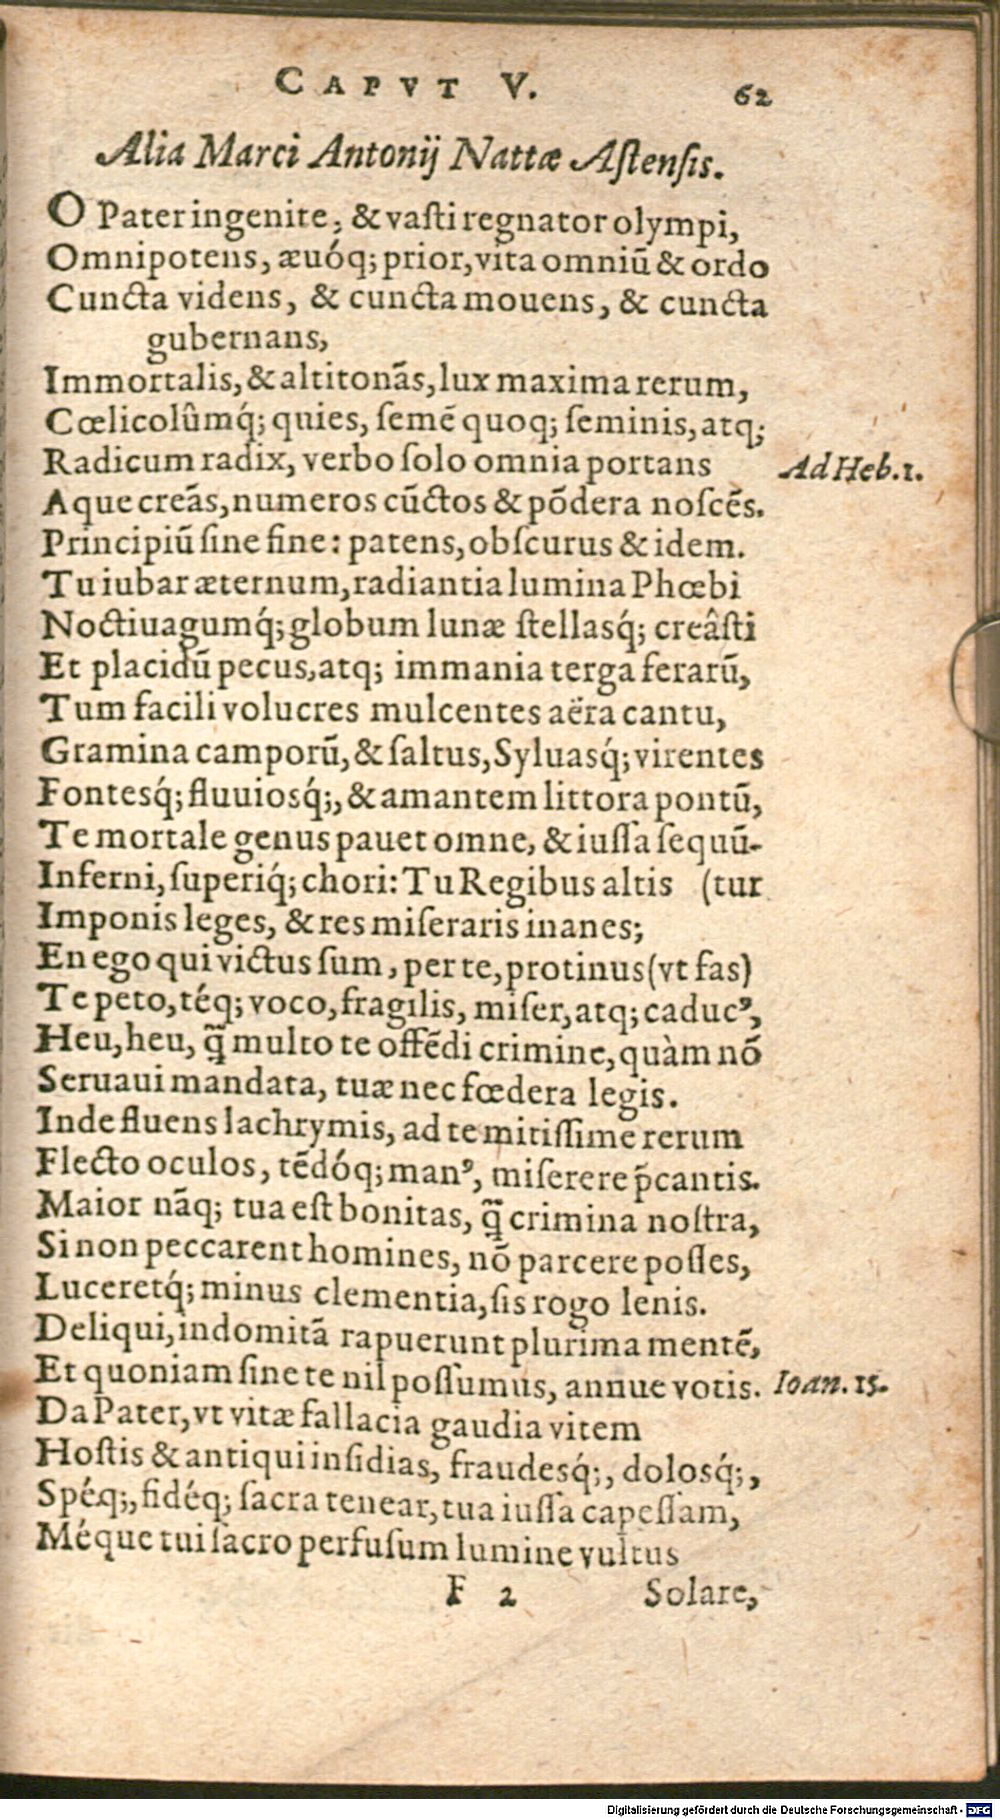 CAPVT V. 62
Alia Marci Antonij Nattæ Astensis.
O Pater ingenite, & vasti regnator olympi,
Omnipotens, æuóq; prior, vita omniũ & ordo
Cuncta videns, & cuncta mouens, & cuncta
gubernans,
Immortalis, & altitonãs, lux maxima rerum,
Cœlicolûmq́; quies, semẽ quoq; seminis, atq;
Radicum radix, verbo solo omnia portans
Ad Heb. 1.
Aque creãs, numeros cũctos & põdera noscẽs.
Principiũ sine fine: patens, obscurus & idem.
Tu iubar æternum, radiantia lumina Phœbi
Noctiuagumq́; globum lunæ stellasq́; creâsti
Et placidũ pecus, atq; immania terga ferarũ,
Tum facili volucres mulcentes aëra cantu,
Gramina camporũ, & saltus, Syluasq́; virentes
Fontesq́; fluuiosq́;, & amantem littora pontũ,
Te mortale genus pauet omne, & iussa sequũ-
Inferni, superiq́; chori: Tu Regibus altis (tur
Imponis leges, & res miseraris inanes;
En ego qui victus sum, per te, protinus (vt fas)
Te peto, téq; voco, fragilis, miser, atq; caducꝰ,
Heu, heu, q̃ multo te offẽdi crimine, quàm nõ
Seruaui mandata, tuæ nec fœdera legis.
Inde fluens lachrymis, ad te mitissime rerum
Flecto oculos, tẽdóq; manꝰ, miserere p̃cantis.
Maior nãq; tua est bonitas, q̃ crimina nostra,
Si non peccarent homines, nõ parcere posses,
Luceretq́; minus clementia, sis rogo lenis.
Deliqui, indomitã rapuerunt plurima mentẽ,
Et quoniam sine te nil possumus, annue votis.
Ioan. 15.
Da Pater, vt vitæ fallacia gaudia vitem
Hostis & antiqui insidias, fraudesq́;, dolosq́;,
Spéq;, fidéq; sacra tenear, tua iussa capessam,
Méque tui sacro perfusum lumine vultus
F 2 Solare,
Digitalisierung gefördert durch die Deutsche Forschungsgemeinschaft - DFG